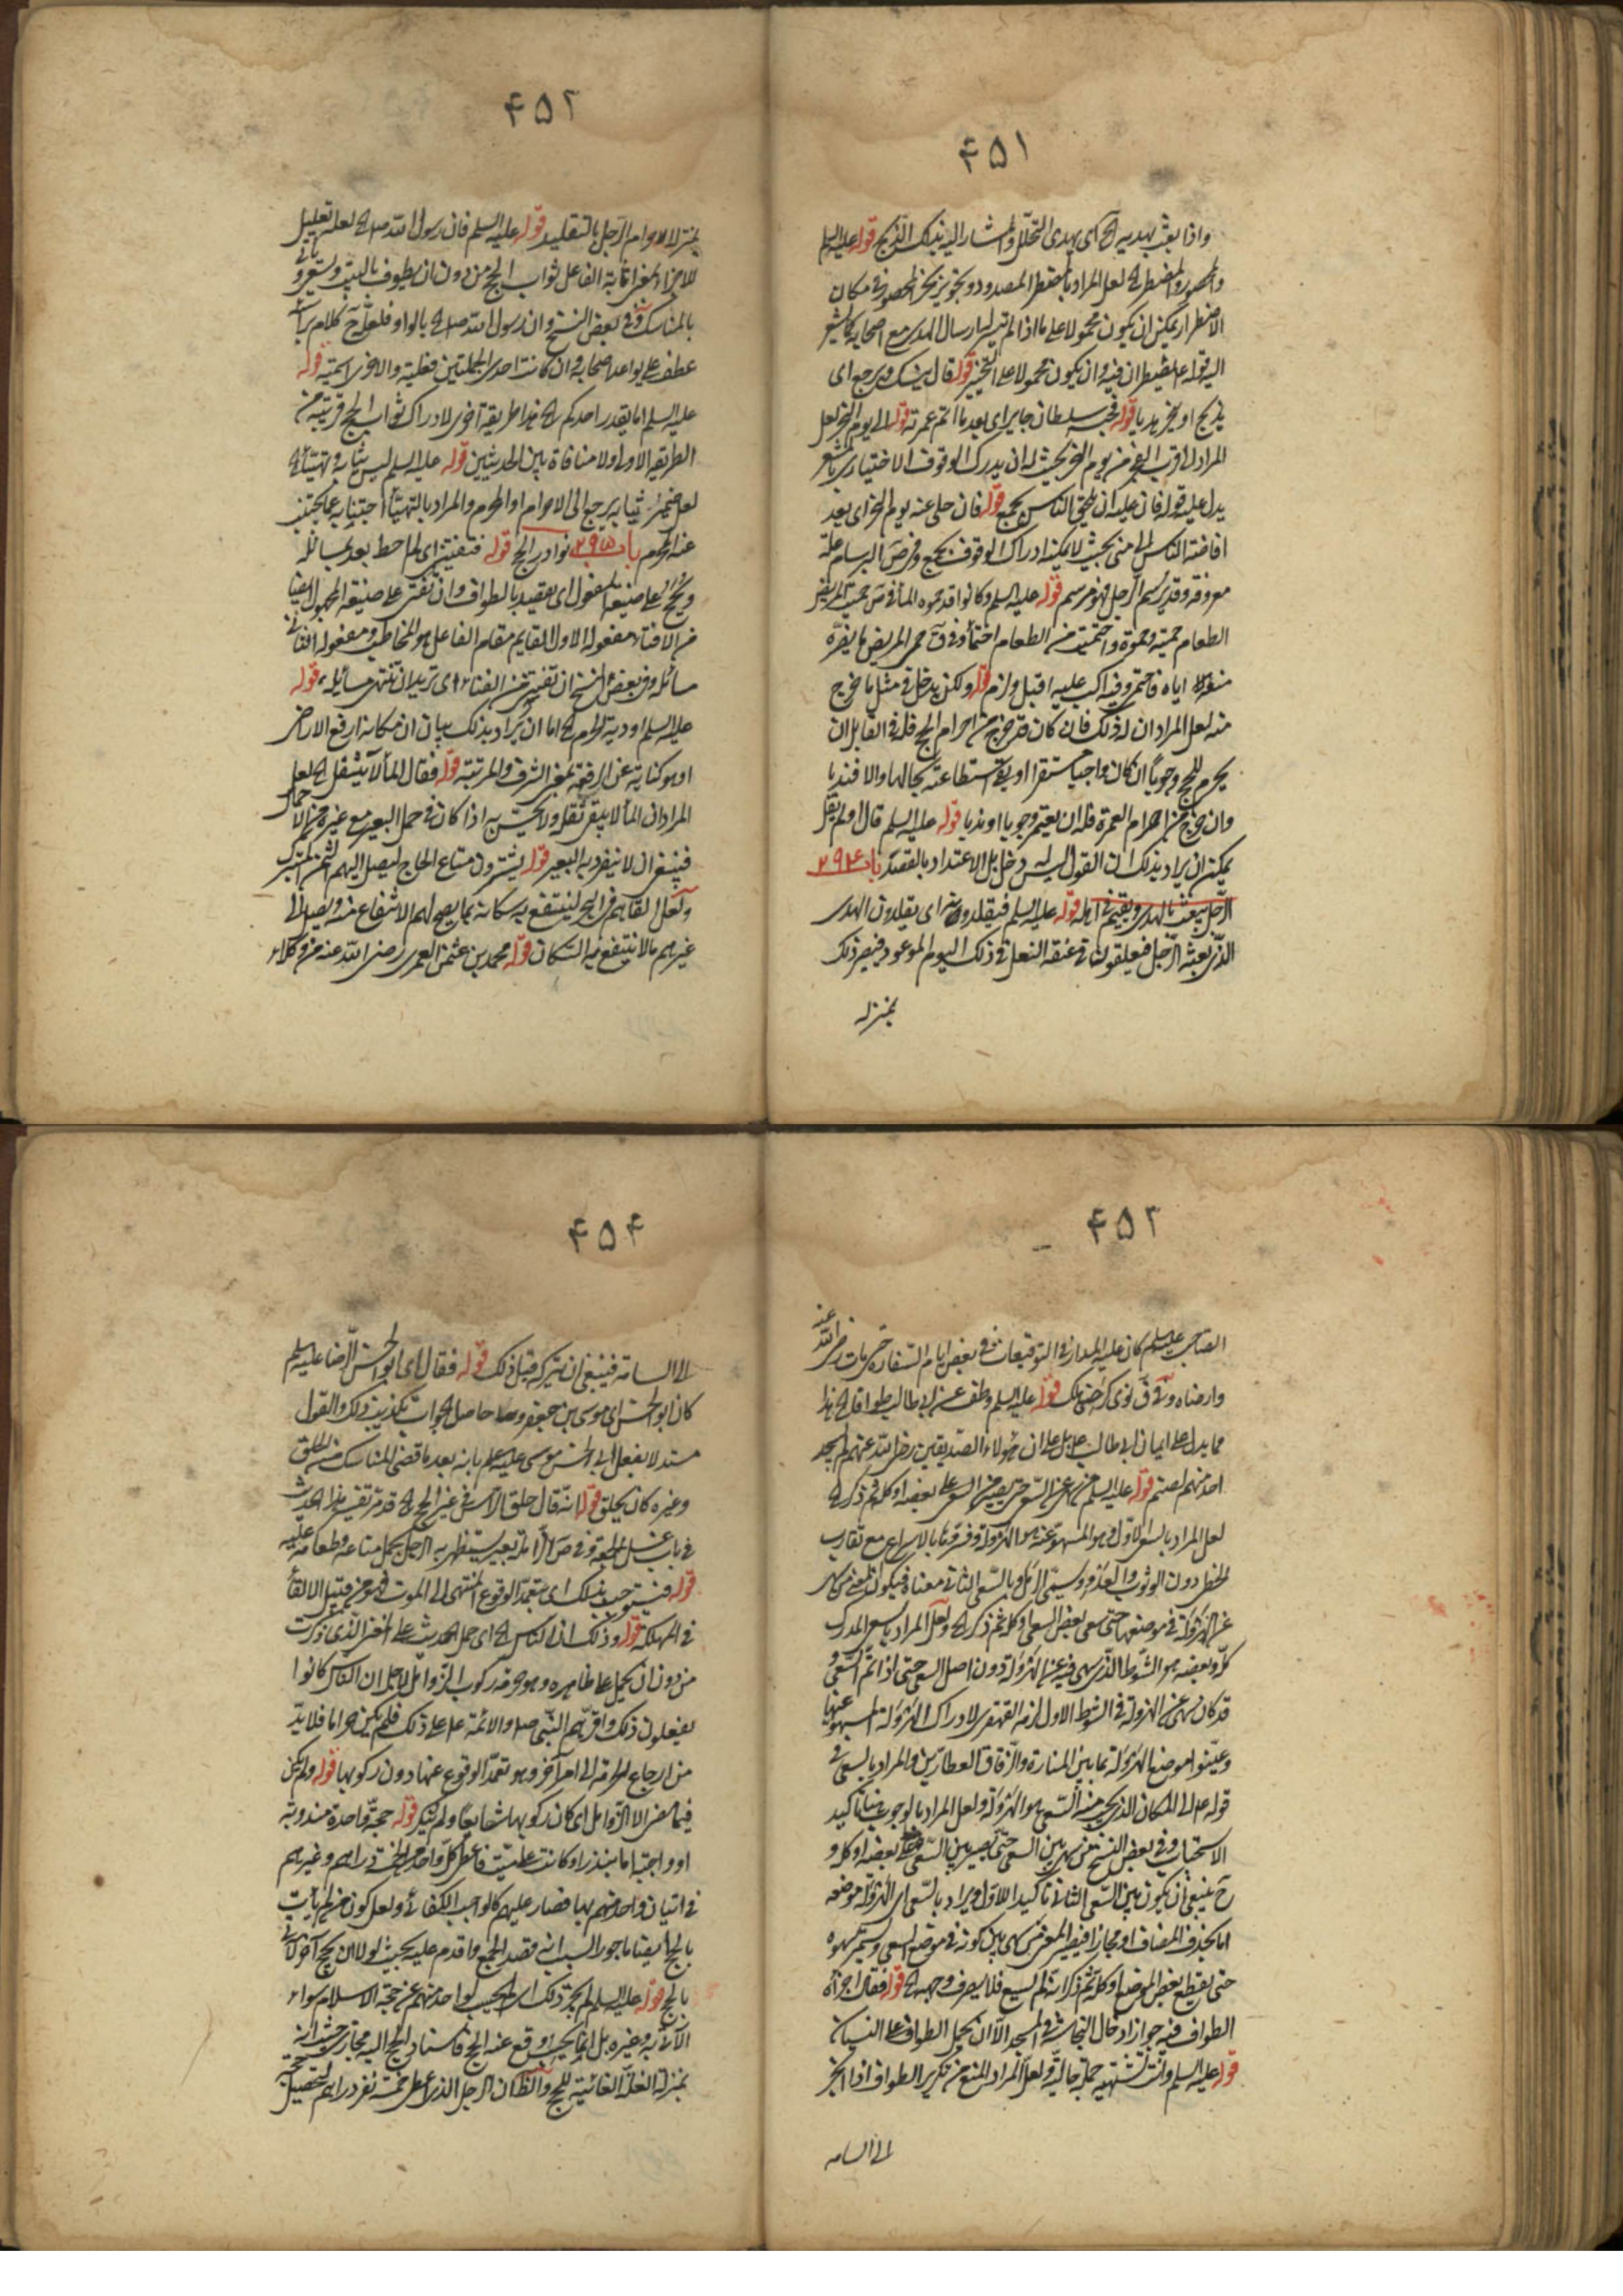 ۴۵۱
واذا بعث بهديه الخ اى بهدى التحلل والمشار اليه بذلك الذبح قوله عليه السلم
والمحصور والمضطر الخ لعل المراد بالمضطر المصدود وتجويز نحر المحصور فى مكان
الاضطرار يمكن ان يكون محمولا على ما اذا لم يتيسر ارسال الهدى مع اصحابه كما يشعر
اليه قوله وان يكون محمولا على التخيير قوله قال ينسك ويرجع اى
يذبح او ينحر بدنة قوله سلطان جاير اى بعد ما اتم عمرته قوله الى يوم النحر لعل
المراد يوم النحر بحيث له ان يدرك الوقوف الاختيارى بالمشعر
يدل عليه قوله فان عليه ان يلحق الناس بجمع قوله فان خلى عنه يوم النحر اى بعد
افاضة الناس الى منى بحيث لا يمكنه ادراك الوقوف بجمع وفى ص البرسام علة
معروفة وقد برسم الرجل فهو مبرسم قوله عليه السلم وكانوا قد حموه الماء فى ص حميت المريض
الطعام حمية وحموة واحتميت من الطعام احتماء وفى ق حمى المريض ما يضره
منعه اياه فاحتمى وفيه اكب عليه اقبل ولزم قوله ولكن يدخل فى مثل ما خرج
منه لعل المراد ان له ذلك فان كان قد خرج من احرام الحج فله فى القابل ان
يحرم للحج وجوبا ان كان واجبا مستقرا او بقى استطاعته بحالها والا فندبا
وان خرج من احرام العمرة فله ان يعتمر وجوبا او ندبا قوله عليه السلم قال او لم يقل
يمكن ان يراد بذلك ان القول ليس له دخل بل الاعتداد بالقصد باب ۲۹۴
الرجل يبعث بالهدى ويقيم فى اهله قوله عليه السلم فيقلدونه اى يقلدون الهدى
الذى بعثه الرجل فيعلقون فى عنقه النعل فى ذلك اليوم الموعود فيصير ذلك
بمنزله
۴۵۲
بمنزلة احرام الرجل بالتقليد قوله عليه السلم فان رسول الله ص الخ لعله تعليل
للاجزاء بمعنى اثابة الفاعل ثواب الحج من دون ان يطوف بالبيت ويسعى وياتى
بالمناسك وفى بعض النسخ وان رسول الله ص الخ بالواو فلعل ح كلام براسه
عطف على يواعد اصحابه وان كانت احدى الجملتين فعلية والاخرى اسمية قوله
عليه السلم اما يقدر احدكم الخ هذا طريقة اخرى لادراك ثواب الحج قريبة من
الطريقة الاولى ولا منافاة بين الحديثين قوله عليه السلم لبس ثيابه وتهيأ الخ
لعل ضمير ثيابه يرجع الى الاحرام او المحرم والمراد بالتهيأ اجتنابه عما يجتنب
عنه المحرم باب ۲۹۵ نوادر الحج قوله
ويحج على صيغة المفعول اى يقصد بالطواف وان تفتى على صيغة المجهول ايضا
من الافتاء مفعوله الاول القايم مقام الفاعل هو المخاطب ومفعوله الثانى
مسائله وفى بعض النسخ ان تفنى من الفناء اى تريد ان تنتهى مسائله قوله
عليه السلم اودية الحرم الخ اما ان يراد بذلك بيان ان مكانه ارفع الاراضى
او هو كناية عن الرفعة بمعنى الشرف والمرتبة قوله فقال الماء لا يثقل الخ لعل
المراد ان الماء لا يبقى ثقله ولا يحس به اذا كان فى حمل البعير مع غيره من الاحمال
فينبغى ان لا ينفرد به البعير قوله يشترون متاع الحاج ليصل اليهم
ولعل القاءهم فى البحر لينتفع به سكانه بما يصح لهم الانتفاع منه ويصل الى
غيرهم ما لا ينتفع به السكان قوله محمد بن عثمن العمرى رضى الله عنه من وكلاء
۴۵۳
الصاحب عليه السلم كان عليه المدار فى التوقيعات فى بعض ايام السفارة حتى مات رضى الله عنه
وارضاه قوله عليه السلم وطف عن ابى طالب طوافا الخ هذا
مما يدل على ايمان ابى طالب بل على ان هؤلاء الصديقين رضى الله عنهم لم يسجد
احد منهم لصنم قوله عليه السلم من سهى عن السعى حتى يصير من السعى على بعضه او كله ثم ذكر الخ
لعل المراد بالسعى الاول هو المسهو عنه هو الهرولة وفسروها بالاسراع مع تقارب
الخطى دون الوثوب والعدو ويسمى الرمل وبالسعى الثانى معناه فيكون المعنى من سهى
عن الهرولة فى موضعها حتى سعى بعض السعى او كله ثم ذكر الخ ولعل المراد بالسعى المدرك
كله وبعضه هو الشوط الذى سهى فيه عن الهرولة دون اصل السعى حتى اذا اتم السعى و
قد كان سهى عن الهرولة فى الشوط الاول لزمه القهقرى لادراك الهرولة المسهو عنها
وعينوا موضع الهرولة بما بين المنارة والزقاق العطارين والمراد بالسعى فى
قوله ع الى المكان الذى يجب منه السعى هو الهرولة ولعل المراد بالوجوب هنا تاكيد
الاستحباب وفى بعض النسخ من سهى بين السعى حتى يصير بين السعى على بعضه او كله و
ح ينبغى ان يكون بين السعى الثانى تاكيدا للاول ويراد بالسعى اى الهرولة موضعه
اما بحذف المضاف او مجازا فيصير المعنى من سهى بين كونه فى موضع السعى ويستمر سهوه
حتى يقطع بعض الموضع او كله ثم ذكر انه لم يسع فلا يصرف وجهه الخ قوله فقال اجزأه
الطواف فيه جواز ادخال النجاسة فى المسجد الا ان يحمل الطواف على النسيان
قوله عليه السلم وانت تشتهيه جملة حالية ولعل المراد المنع من تكرير الطواف اذا انجر
الى السامه
۴۵۴
الى السامة فينبغى ان يتركه قبل ذلك قوله فقال اى ابو الحسن الرضا عليه السلم
كان ابو الحسن اى موسى بن جعفر وحاصل الجواب تكذيب ذلك والقول
مستدلا بفعل ابى الحسن موسى عليه السلم بانه بعد ما قضى المناسك من الحلق
وغيره كان يحلق قوله انه قال حلق الراس فى غير الحج الخ قد مر تفسير هذا الحديث
فى باب غسل الجمعة وفى ص الزاملة بعير يستظهر به الرجل يحمل متاعه وطعامه عليه
قوله اى يتعمد الوقوع المنتهى الى الموت فهو من قبيل الالقاء
فى التهلكة قوله وذلك ان الناس الخ اى حمل الحديث على المعنى الذى ذكرت
من دون ان يحمل على ظاهره وهو حرمة ركوب الزوامل لاجل ان الناس كانوا
يفعلون ذلك واقرهم النبى ص والائمة ع على ذلك فلم يكن حراما فلابد
من ارجاع الحرمة الى امر آخر وهو تعمد الوقوع عنها دون ركوبها قوله ولم يكن
فيما مضى الا الزوامل اى كان ركوبها شايعا ولم ينكر قوله حجة واحدة مندوبة
او واجبة اما بنذر او كانت على ميت فاعطى كل واحد الخمسة دراهم وغيرهم
فى اتيان واحد منهم بها فصار عليهم كالواجب الكفائى ولعل كون من لم يات
بالحج ايضا ماجورا لسبب انه قصد الحج واقدم عليه بحيث لولا ان يحج آخر لاتى
بالحج قوله عليه السلم لم يجز ذلك اى لم يحسب لواحد منهم عن حجة الاسلام سواء
الآتى به وغيره بل انما يحسب لمن وقع عنه الحج فاسناد الحج اليه مجازى حيث انه
بمنزلة العلة الغائية للحج والظاهر ان الرجل الذى اعطى خمسة نفر دراهم لتحصيل حجته